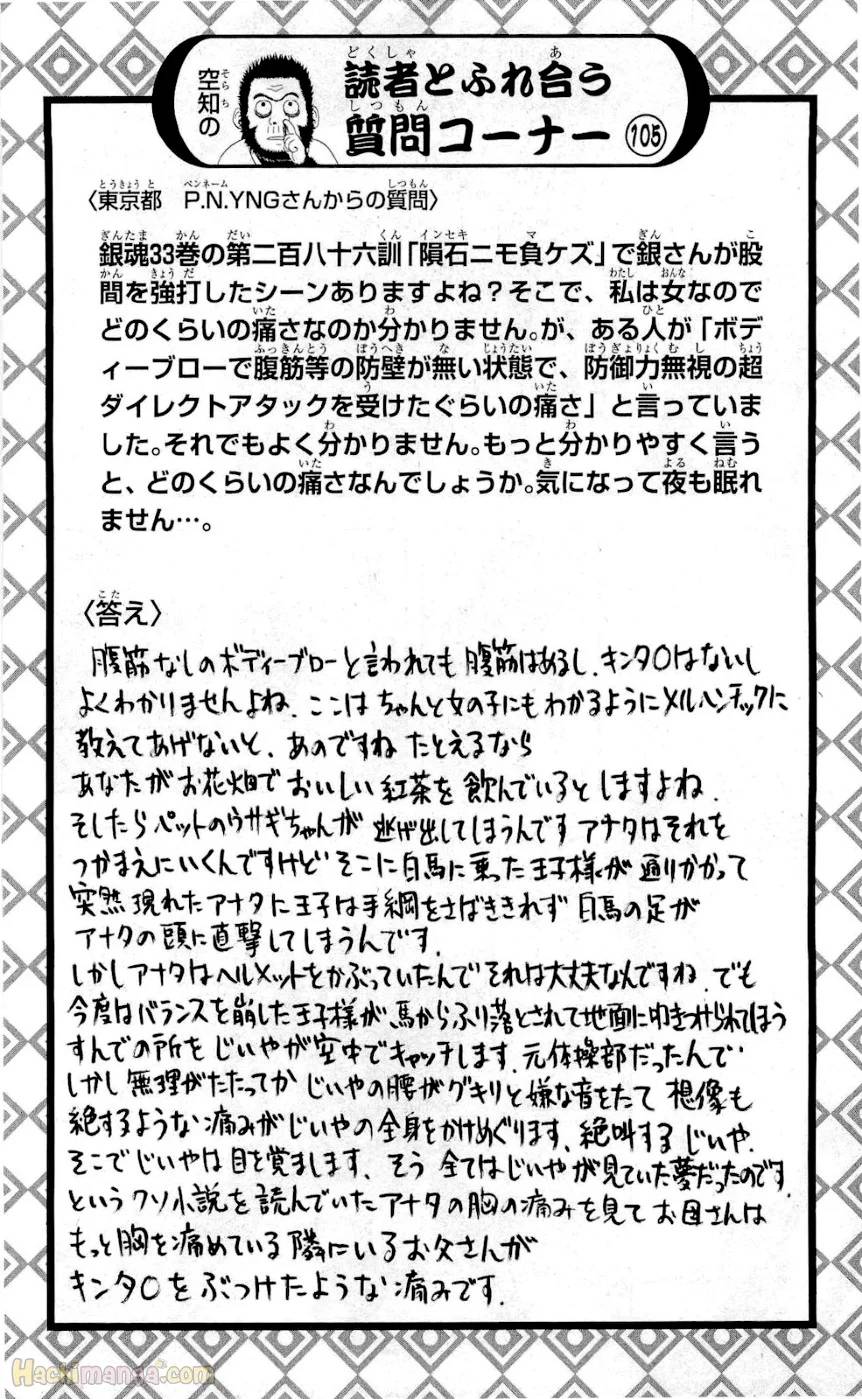 空知の
読者とふれ合う
質問コーナー 105
〈東京都 P.N.YNGさんからの質問〉
銀魂33巻の第二百八十六訓「隕石ニモ負ケズ」で銀さんが股
間を強打したシーンありますよね?そこで、私は女なので
どのくらいの痛さなのか分かりません。が、ある人が「ボデ
ィーブローで腹筋等の防壁が無い状態で、防御力無視の超
ダイレクトアタックを受けたぐらいの痛さ」と言っていま
した。それでもよく分かりません。もっと分かりやすく言う
と、どのくらいの痛さなんでしょうか。気になって夜も眠れ
ません…。
〈答え〉
腹筋なしのボディーブローと言われても腹筋はあるし、キンタ〇はないし
よくわかりませんよね。ここはちゃんと女の子にもわかるようにメルヘンチックに
教えてあげないと、あのですねたとえるなら
あなたがお花畑でおいしい紅茶を飲んでいるとしますよね。
そしたらペットのウサギちゃんが逃げ出してしまうんですアナタはそれを
つかまえにいくんですけどそこに白馬に乗った王子様が通りかかって
突然現れたアナタに王子は手綱をさばききれず白馬の足が
アナタの頭に直撃してしまうんです。
しかしアナタはヘルメットをかぶっていたんでそれは大丈夫なんですね。でも
今度はバランスを崩した王子様が馬からふり落とされて地面に叩きつけられてしまう
すんでの所をじいやが空中でキャッチします。元体操部だったんで
しかし無理がたたってかじいやの腰がグキリと嫌な音をたて想像も
絶するような痛みがじいやの全身をかけめぐります、絶叫するじいや。
そこでじいやは目を覚まします、そう全てはじいやが見ていた夢だったのです。
というクソ小説を読んでいたアナタの胸の痛みを見てお母さんは
もっと胸を痛めている隣にいるお父さんが
キンタ〇をぶつけたような痛みです。
Hackimanga.com